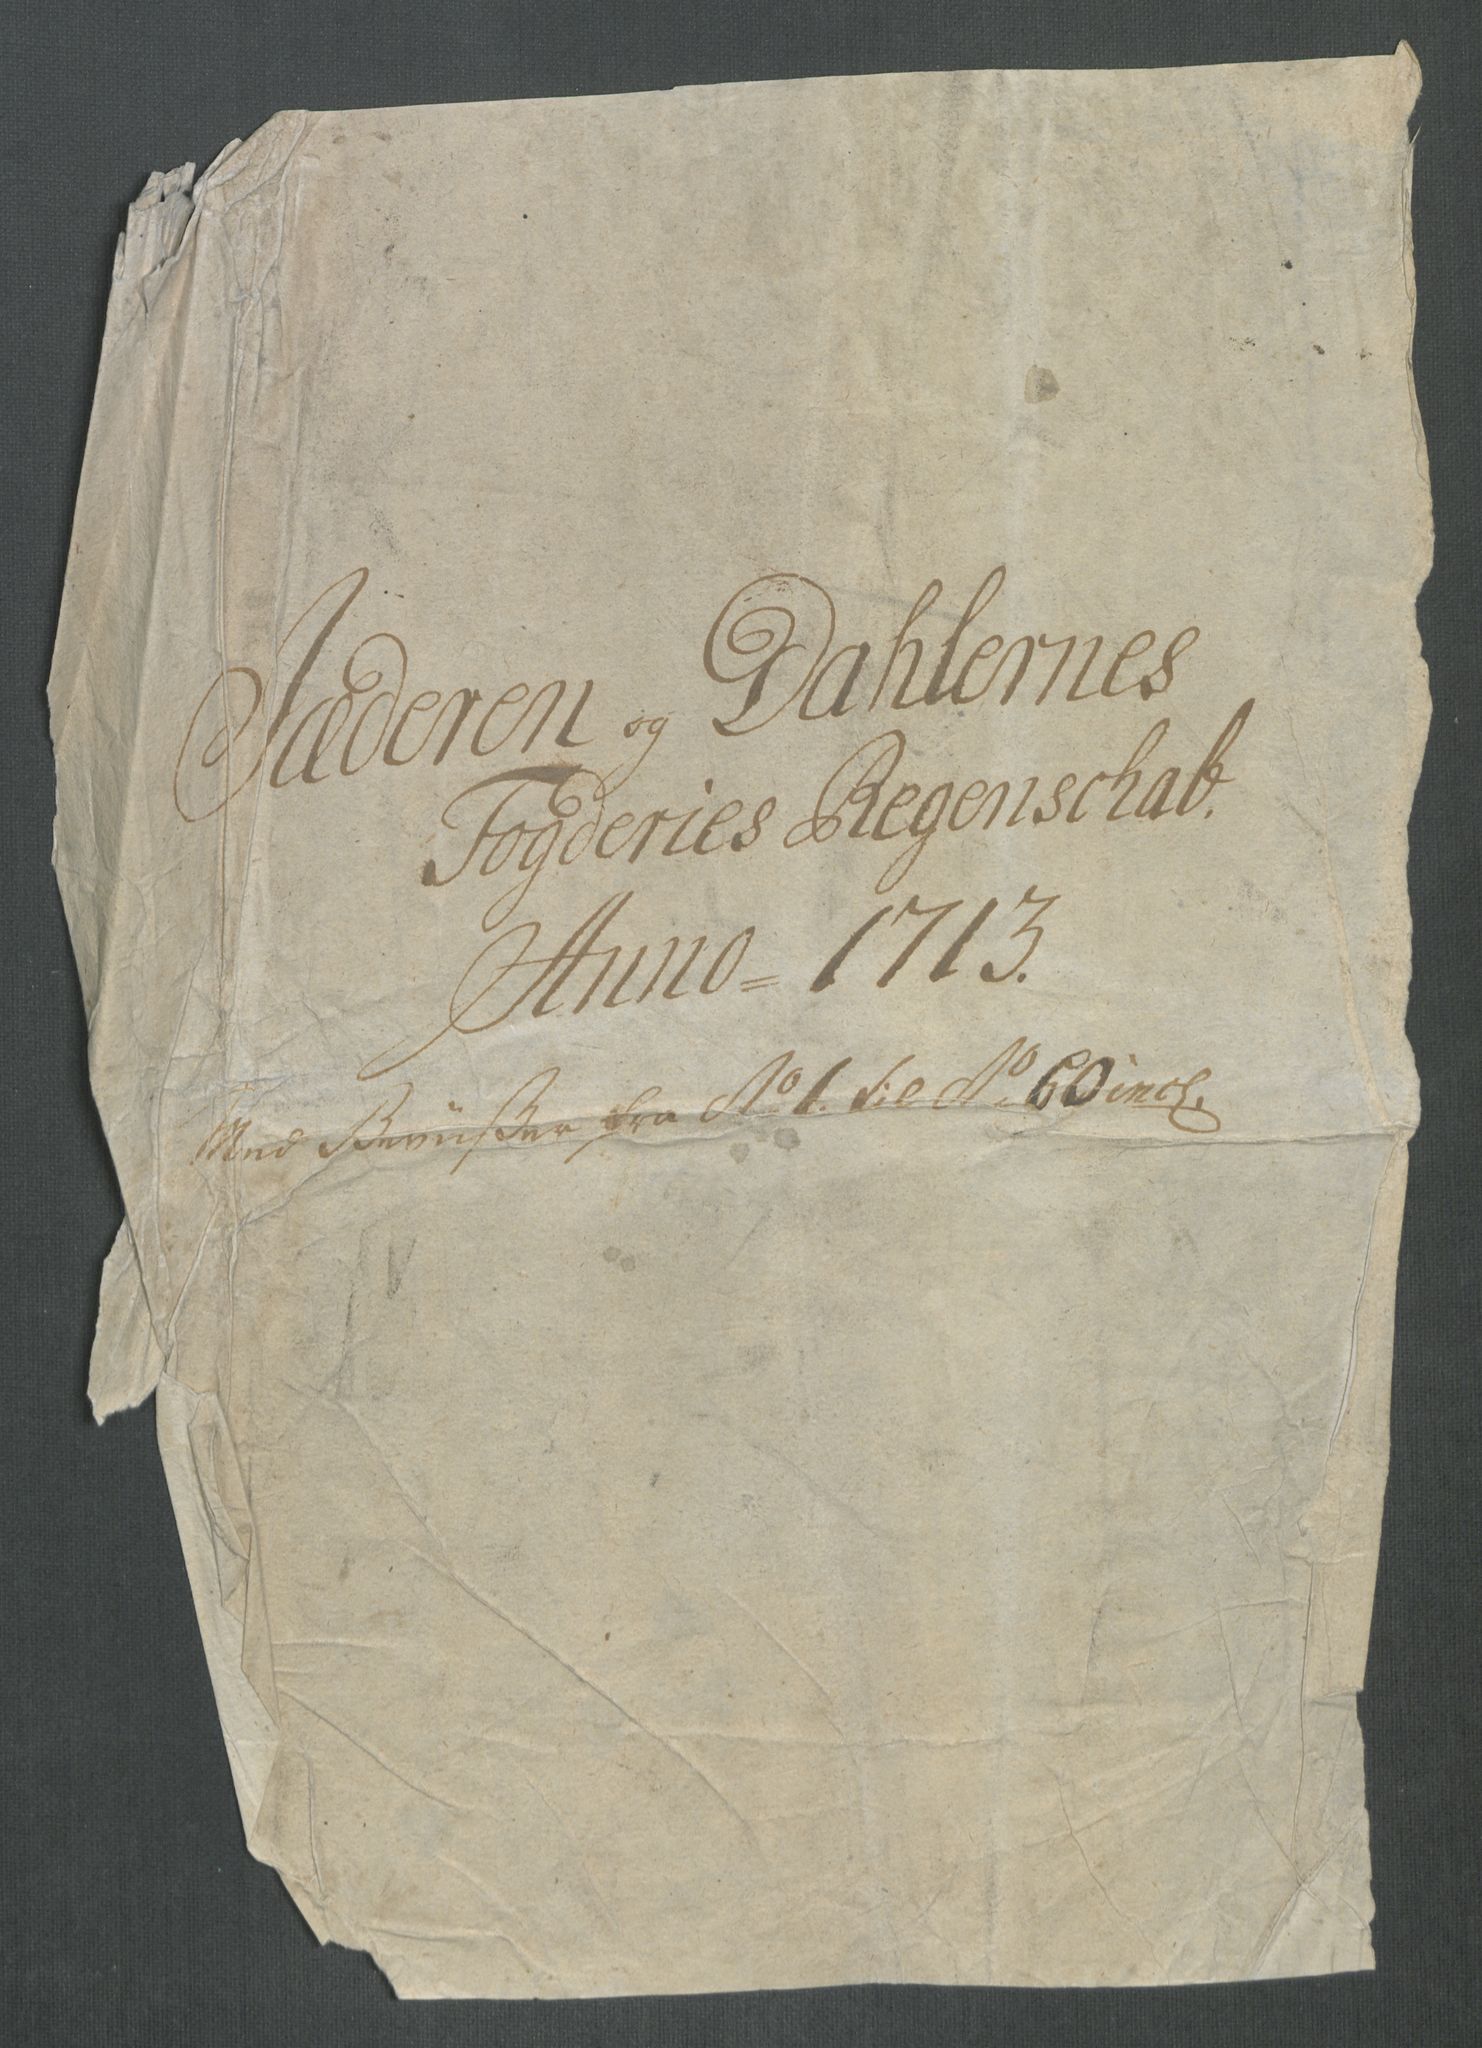 Jæderen og Dahlernes
Fogderies Regenschab.
Anno= 1713.
Med Beviißer fra No 1. til No 60 incl.